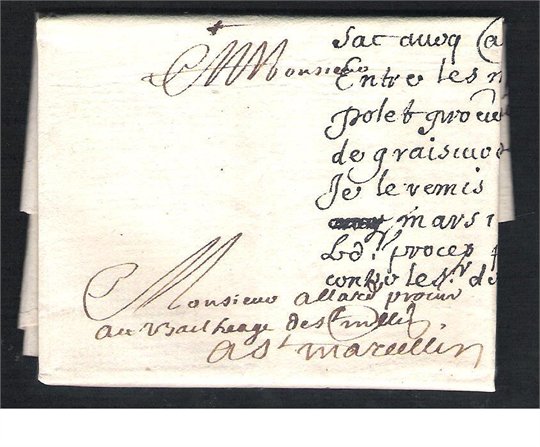 Monsieur
Sac aveq
Entre les
polet
de
Je le remis
mars
Led.^t proces
contre les.^r de
Monsieur allard procur
au Bailheage de s^t
a s^t marcellin